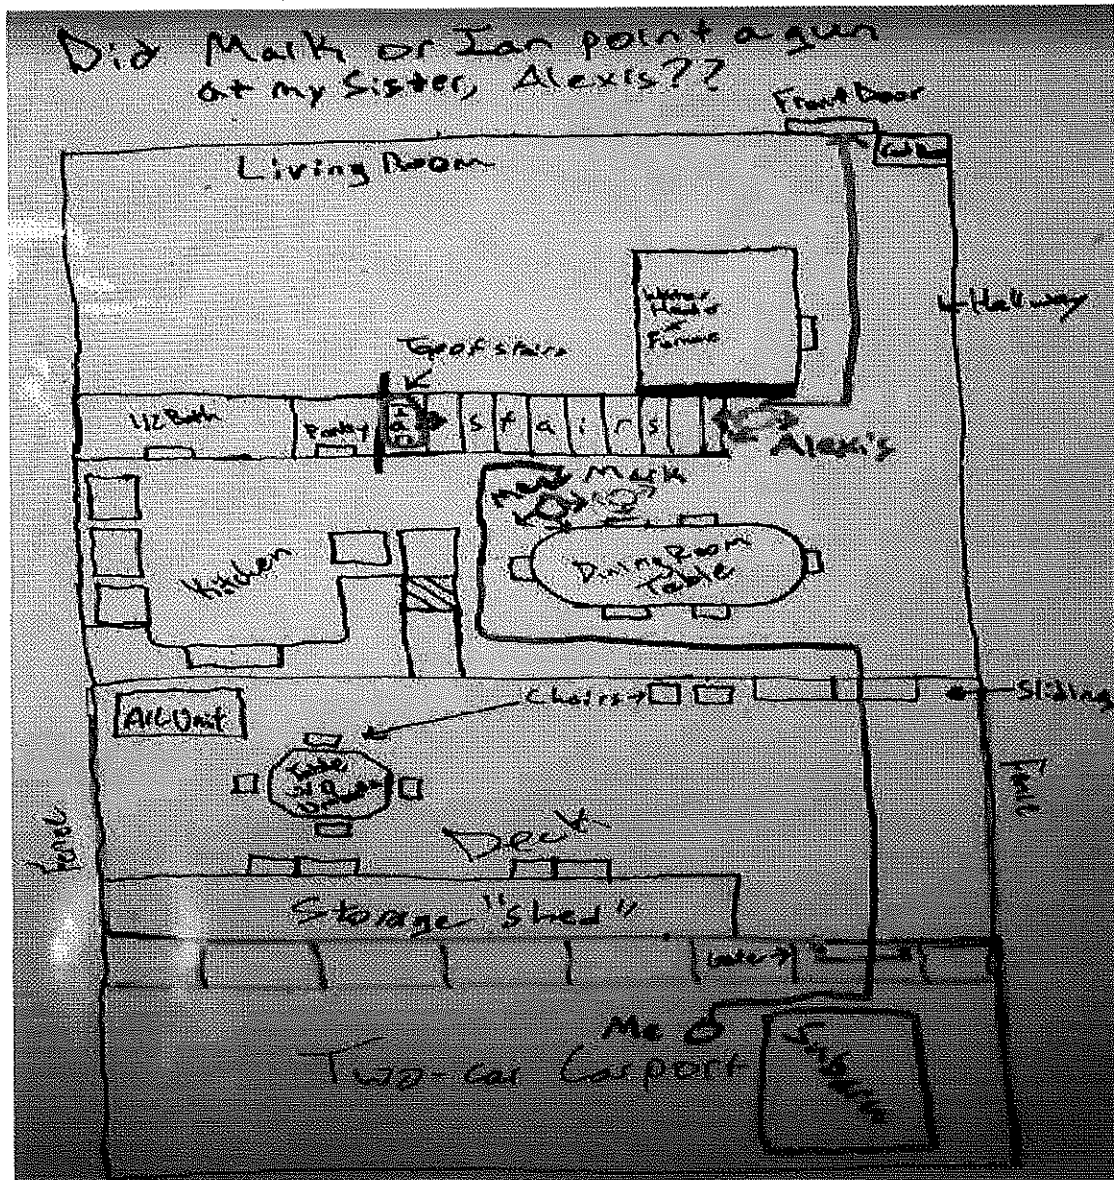 Did Mark or Ian point a gun
at my Sister, Alexis??
Front Door
Living Room
Water
Heater
Furnace
Hallway
Top of stairs
1/2 Bath
Pantry
stairs
Alexis
Me
Mark
Kitchen
Dining Room
Table
Chairs
Sliding
A/C Unit
Table
Fence
Fence
Deck
Storage "shed"
Me
Two-car Carport